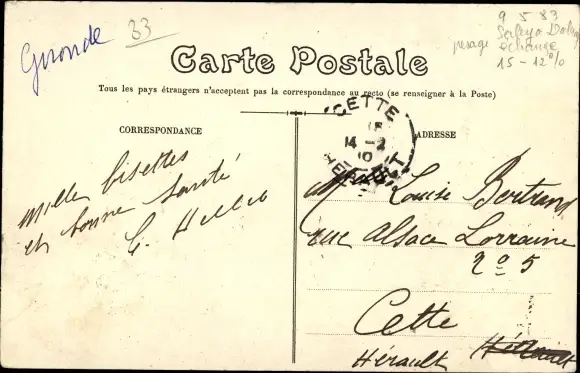 Gironde
33
9 5 83
échange
15 - 12 %
Carte Postale
Tous les pays étrangers n'acceptent pas la correspondance au recto (se renseigner à la Poste)
CORRESPONDANCE
ADRESSE
CETTE
14 - 2
10
HERAULT
Mille bisettes
et bonne santé
Louise Bertrand
rue Alsace Lorraine
nº 5
Cette
Hérault